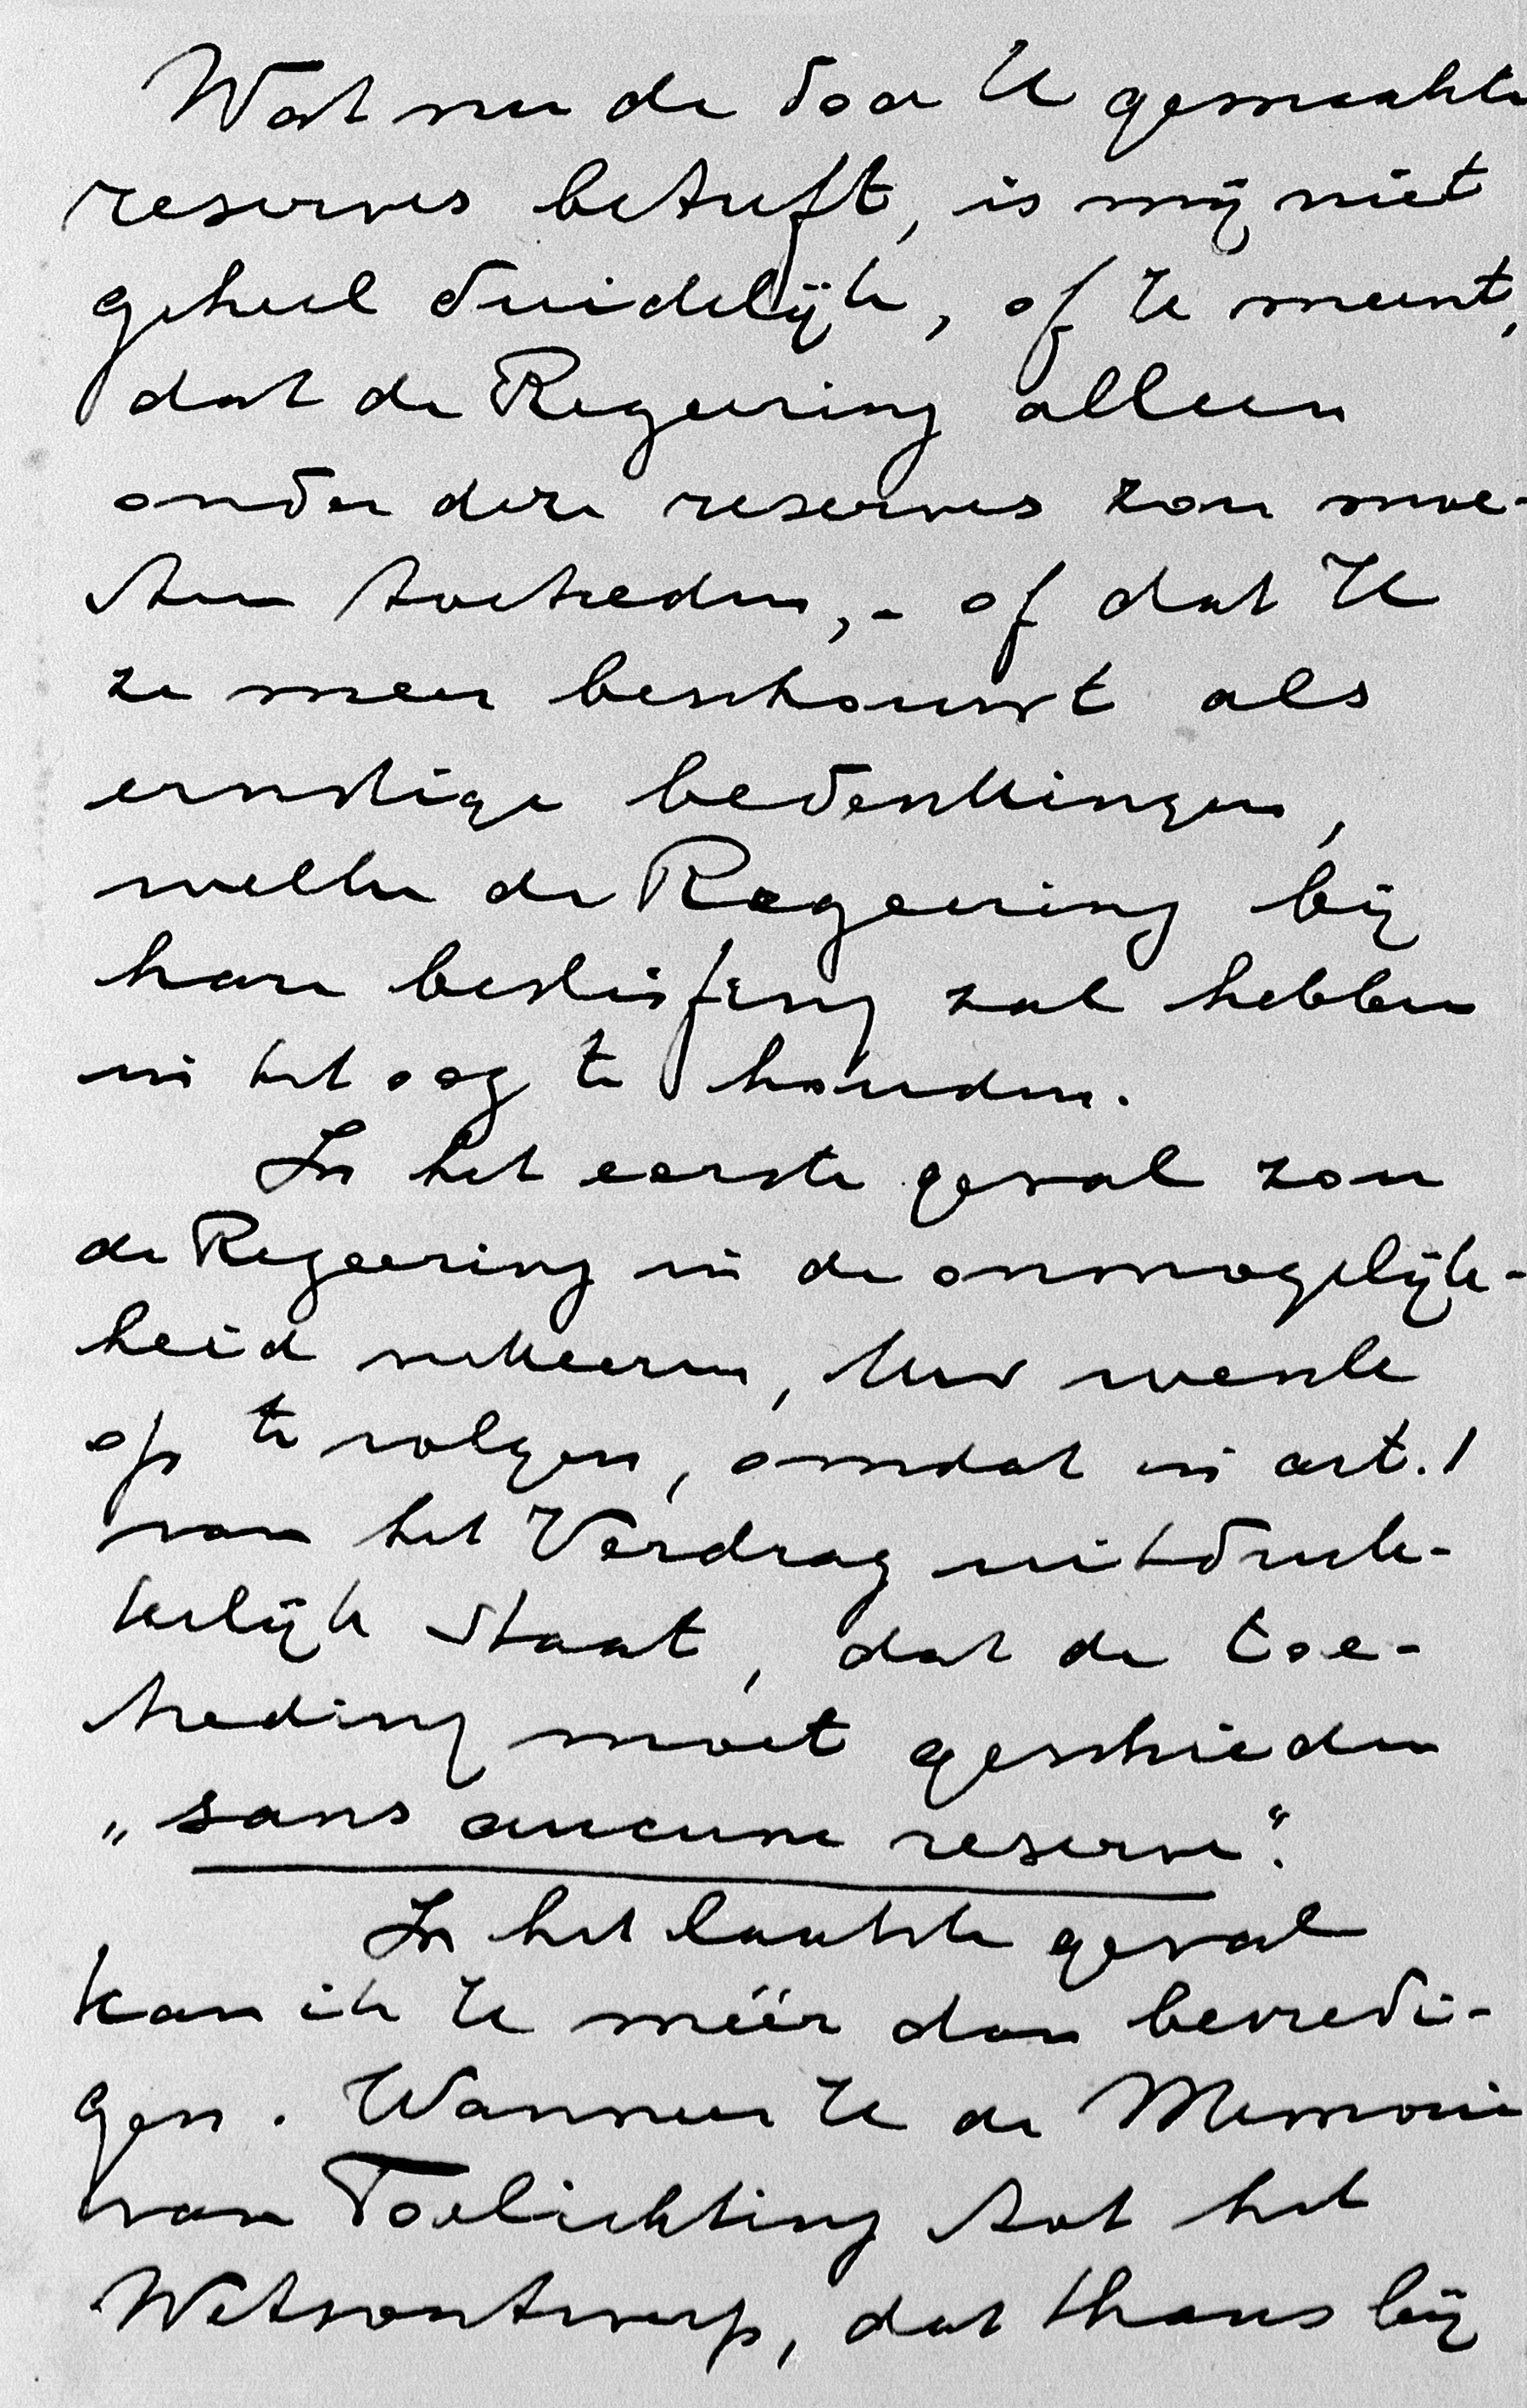 Wat nu de door U gemaakte
reserves betreft, is mij niet
geheel duidelijk, of U meent,
dat de Regeering alleen
onder deze reserves zou moe-
ten toetreden, - of dat U
ze meer beschouwt als
ernstige bedenkingen,
welke de Regeering bij
hare beslissing zal hebben
in het oog te houden.
In het eerste geval zou
de Regeering in de onmogelijk-
heid verkeeren, Uw wenk
op te volgen, omdat in art. 1
van het Verdrag uitdruk-
kelijk staat, dat de toe-
treding moet geschieden
„sans aucune reserve“.
In het laatste geval
kan ik U méér dan bevredi-
gen. Wanneer U de Memorie
van Toelichting tot het
Wetsontwerp, dat thans bij